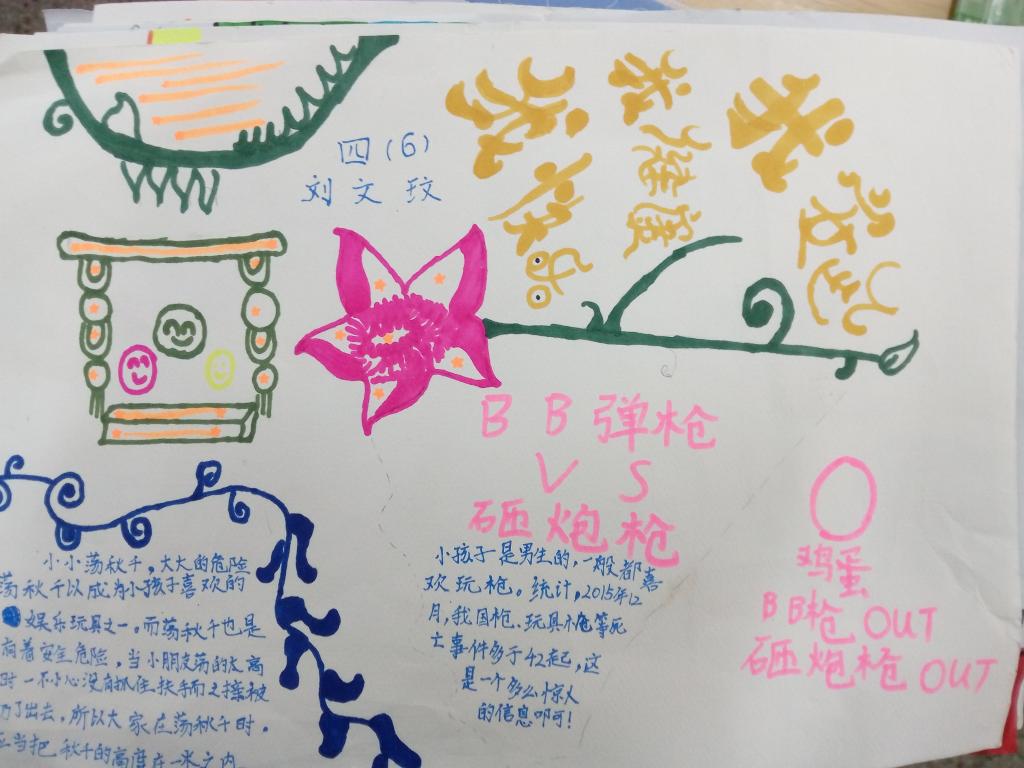 四(6)
刘文玟
我快乐
我健康
我
BB弹枪
VS
砸炮枪
鸡蛋
BB枪 OUT
砸炮枪 OUT
小小荡秋千,大大的危险
荡秋千以成为小孩子喜欢的
娱乐玩具之一。而荡秋千也是
有着安全危险,当小朋友荡的太高
时一不小心没有抓住扶手而
了出去,所以大家在荡秋千时。
应当把秋千的高度在一米之内
小孩子一是男生的,一般都喜
欢玩枪。统计,2015年12
月,我国枪、玩具等死
亡事件多于42起,这
是一个多么惊人
的信息啊!